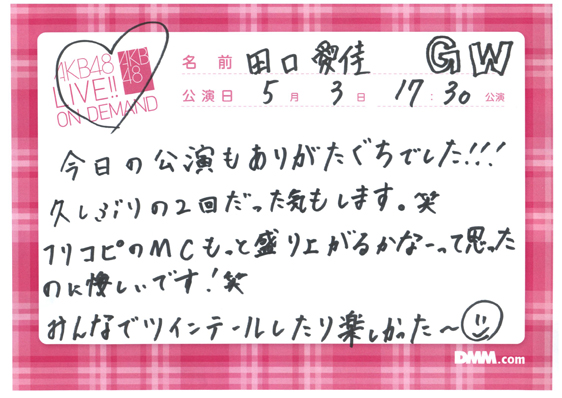 AKB48
LIVE!!
ON DEMAND
AKB
48
名前 田口愛佳
GW
公演日 5月3日 17:30公演
今日の公演もありがたぐちでした!!!
久しぶりの2回だった気もします。笑
フリコピのMCもっと盛り上がるかなーって思った
のに悔しいです!笑
みんなでツインテールしたり楽しかった〜
DMM.com